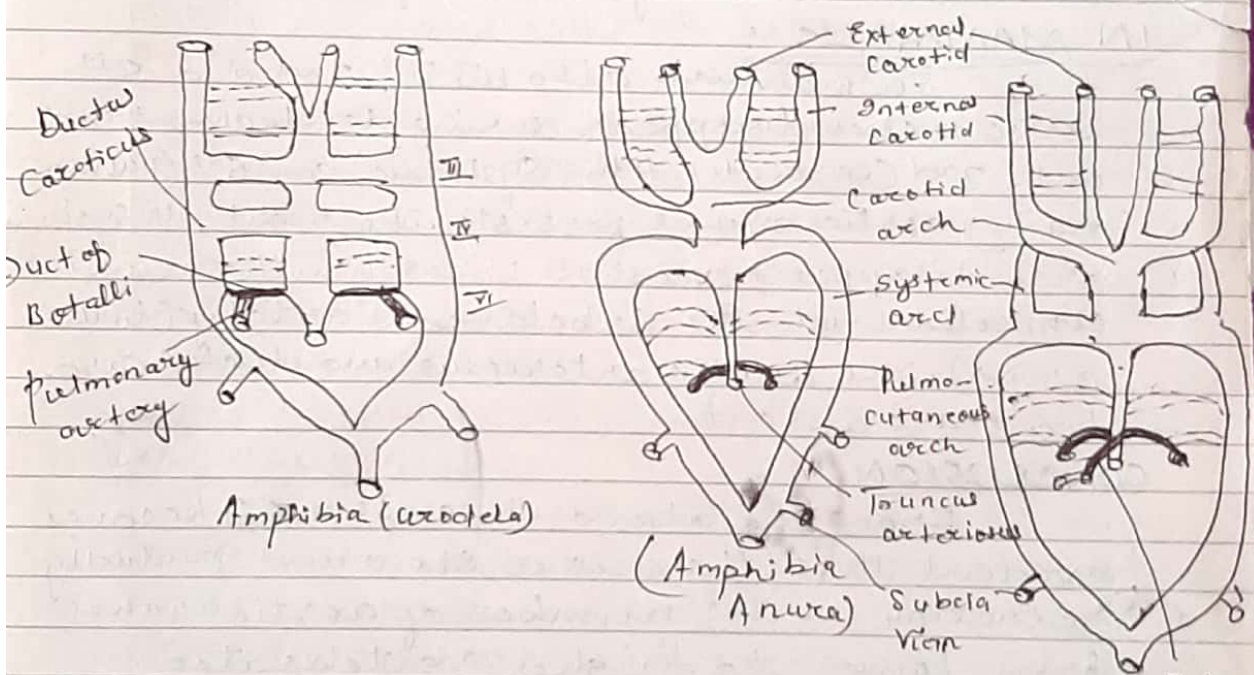 Ductus
Caroticus
Duct of
Botalli
Pulmonary
artery
III
IV
VI
Amphibia (urodela)
External
carotid
Internal
Carotid
Carotid
arch
Systemic
arch
Pulmo-
cutaneous
arch
Truncus
arteriosus
Subcla
vian
(Amphibia
Anura)